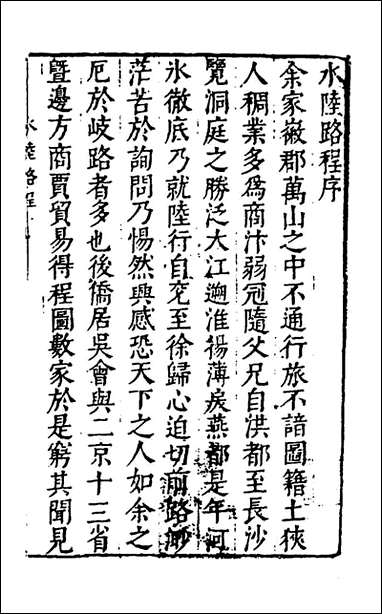 水陸路程序
余家徽郡萬山之中不通行旅不諳圖籍土狹
人稠業多為商汴弱冠隨父兄自洪都至長沙
覽洞庭之勝泛大江遡淮揚薄戾燕都是年河
氷徹底乃就陸行自兖至徐歸心迫切前路渺
茫苦於詢問乃惕然興感恐天下之人如余之
厄於岐路者多也後僑居吳會與二京十三省
暨邊方商賈貿易得程圖數家於是窮其聞見
水陸路程